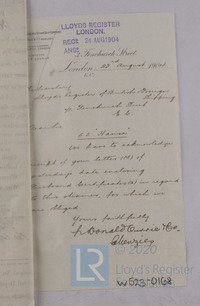 LLOYDS REGISTER
LONDON.
RECD 24 AUG 1904
ANSD
Fenchurch Street
London, 23rd August 1904
The Secretary
Lloyds Register of British &
Shipping
Fenchurch Street
E.C.
Dear Sir
We have to acknowledge
receipt of your letter (2) of
yesterday's date enclosing
Certificates (2) in regard
to this steamer, for which we
are obliged.
Yours faithfully
p Donald Currie & Co.
© 2020
LR
Lloyd's Register
Foundation
W523-0168